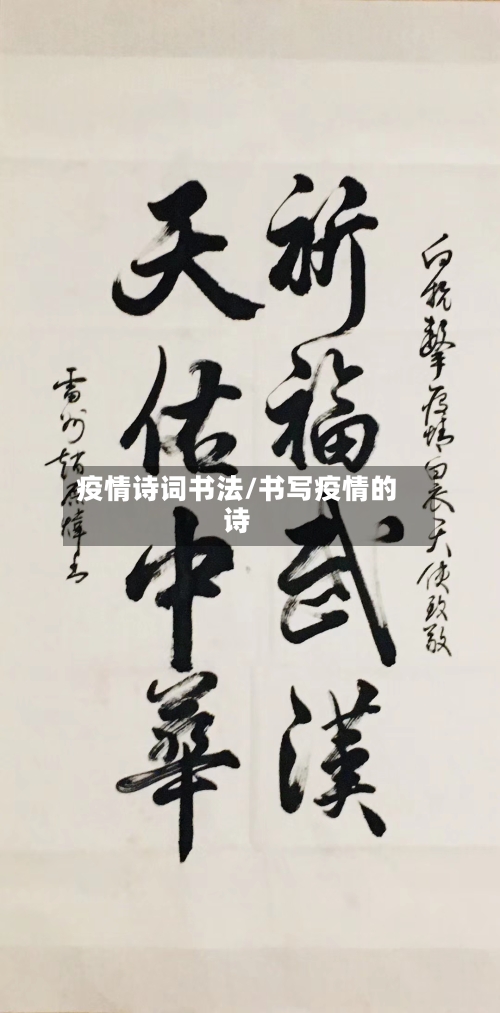 向抗擊疫情白衣天使致敬
祈福武漢
天佑中華
雷州趙
疫情诗词书法/书写疫情的
诗